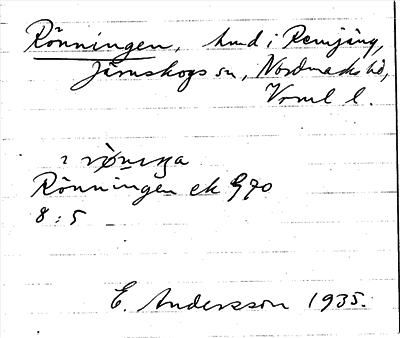 Rönningen, hmd i Remjäng,
Järnskogs sn, Nordmarks hd,
Vrml l.
ı rø̀nıŋa
Rönningen ek G90
8:5
E. Andersson 1935.